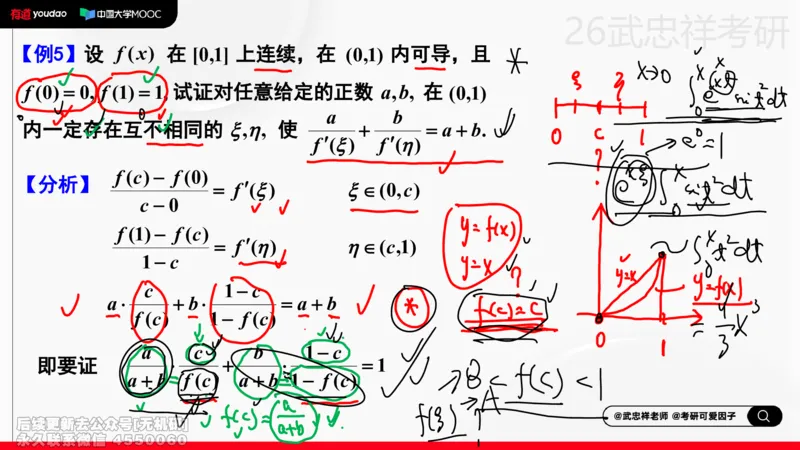 有道 youdao 中国大学MOOC
26武忠祥考研
【例5】设 f(x) 在 [0,1] 上连续，在 (0,1) 内可导，且
f(0) = 0, f(1) = 1, 试证对任意给定的正数 a, b, 在 (0,1)
内一定存在互不相同的 ξ, η, 使 a/f′(ξ) + b/f′(η) = a + b.
【分析】 (f(c) − f(0))/(c − 0) = f′(ξ) ξ ∈ (0, c)
(f(1) − f(c))/(1 − c) = f′(η) η ∈ (c, 1)
a · c/f(c) + b · (1 − c)/(1 − f(c)) = a + b
即要证 a/(a + b) · c/f(c) + b/(a + b) · (1 − c)/(1 − f(c)) = 1
f(c) = a/(a+b)
y = f(x)
y = x
f(c) = c
x→0
0 c 1
e⁰ = 1
y=x
y=f(x)
0 1
< f(c) < 1
@武忠祥老师 @考研可爱因子
后续更新去公众号[无机领]
永久联系微信 4550060